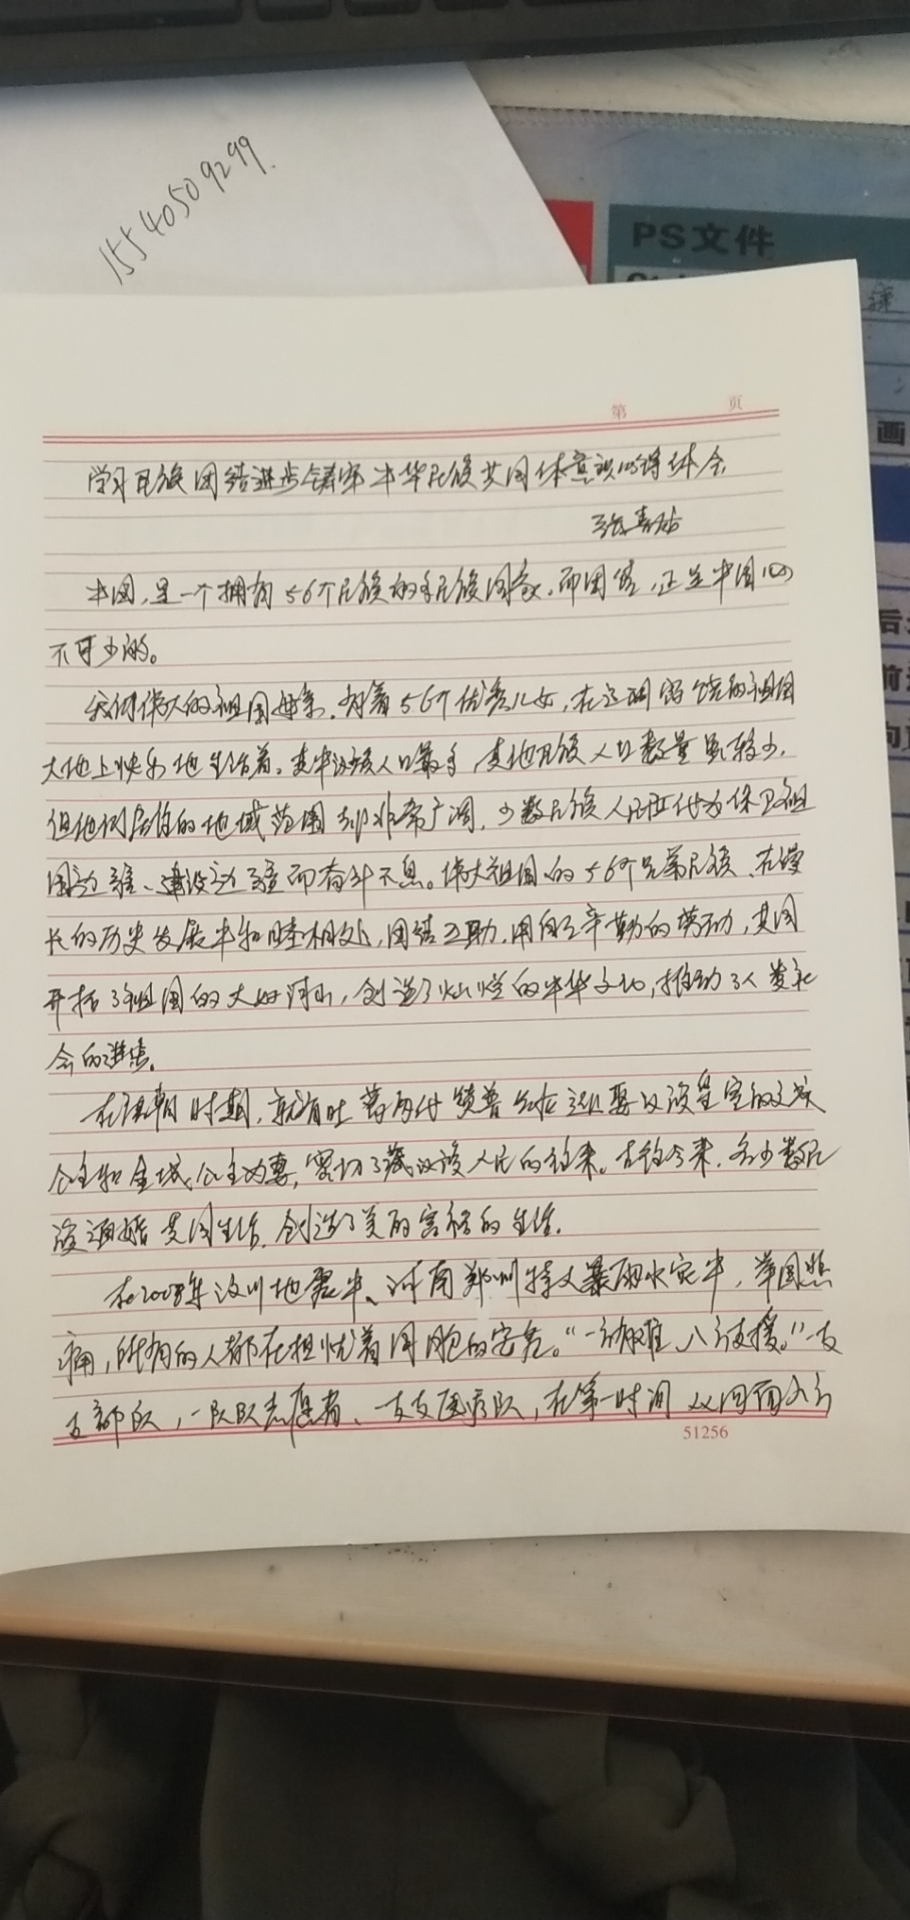 15540509299
PS文件
第 页
画
学习民族团结进步铸牢中华民族共同体意识心得体会
中国,是一个拥有56个民族的多民族国家,而团结,正是中国必
不可少的。
我们伟大的祖国母亲,有着56个优秀儿女,在这辽阔富饶的祖国
大地上快乐地生活着。其中汉族人口最多,其他民族人口数量虽较少,
但他们居住的地域范围却非常广阔,少数民族人民世代为保卫祖
国边疆、建设边疆而奋斗不息。伟大祖国的56个兄弟民族,在漫
长的历史发展中和睦相处,团结互助,用自己辛勤的劳动,共同
开拓了祖国的大好河山,创造了灿烂的中华文化,推动了人类社
会的进步。
在唐朝时期,就有吐蕃两代赞普先后迎娶汉族皇室的文成
公主和金城公主为妻,密切了藏汉族人民的往来。古往今来,各少数民
族通婚共同生活,创造了美丽富裕的生活。
在2008年汶川地震中、河南郑州特大暴雨水灾中,举国悲
痛,所有的人都在担忧着同胞的安危。“一方有难,八方支援。”一支
支部队,一队队志愿者、一支支医疗队,在第一时间从四面八方
51256